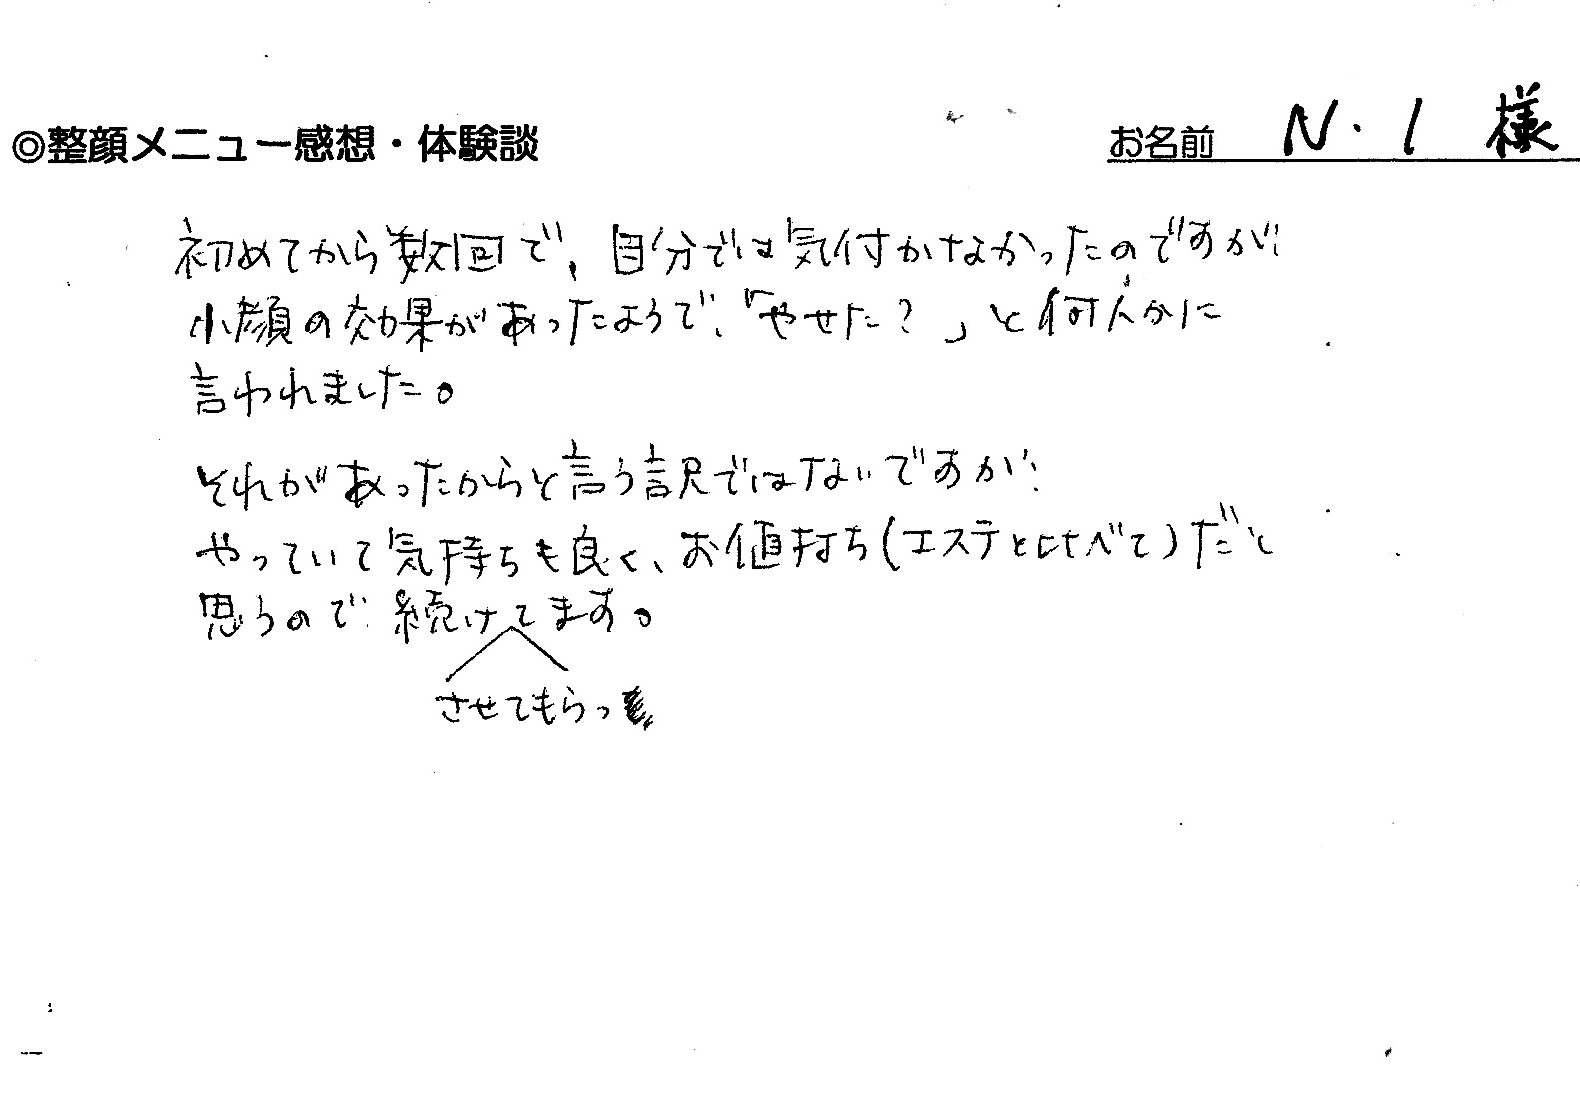 ◎整顔メニュー感想・体験談
お名前 N・I 様
初めてから数回で、自分では気付かなかったのですが、
小顔の効果があったようで、「やせた?」と何人かに
言われました。
それがあったからと言う訳ではないですが、
やっていて気持ちも良く、お値打ち(エステと比べて)だと
思うので、続けてます。
させてもらっ